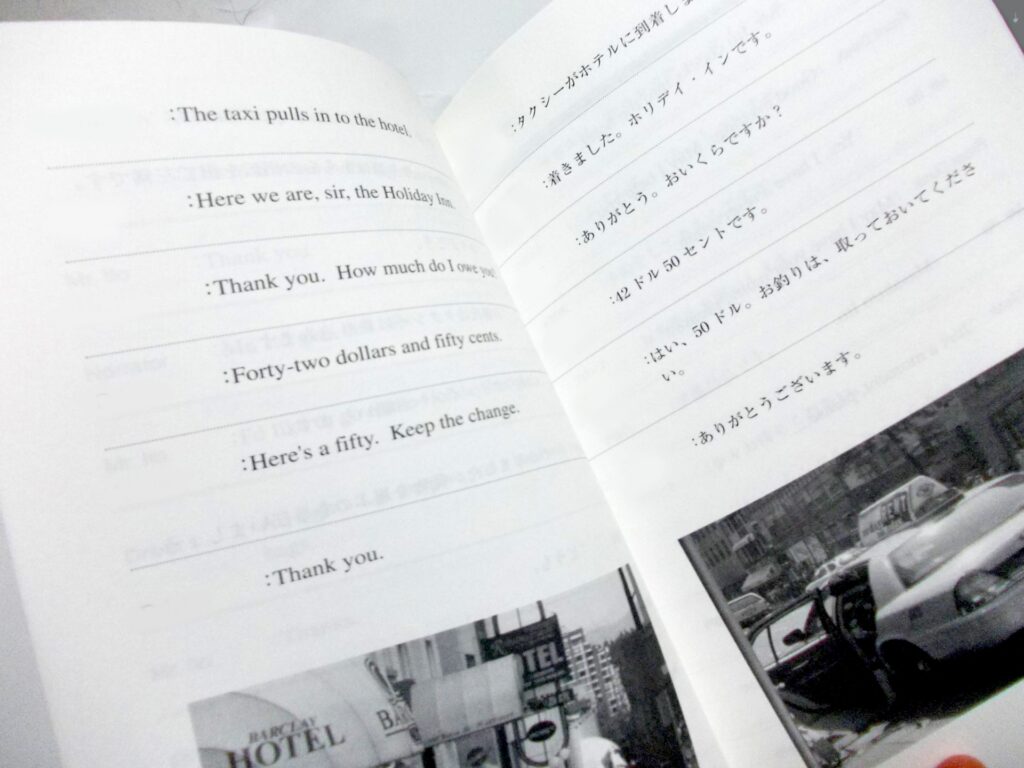 :The taxi pulls in to the hotel.
:Here we are, sir, the Holiday Inn.
:Thank you.  How much do I owe you?
:Forty-two dollars and fifty cents.
:Here's a fifty.  Keep the change.
:Thank you.
BARCLAY
HOTEL
:タクシーがホテルに到着しま
:着きました。ホリデイ・インです。
:ありがとう。おいくらですか？
:42ドル50セントです。
:はい、50ドル。お釣りは、取っておいてくださ
い。
:ありがとうございます。